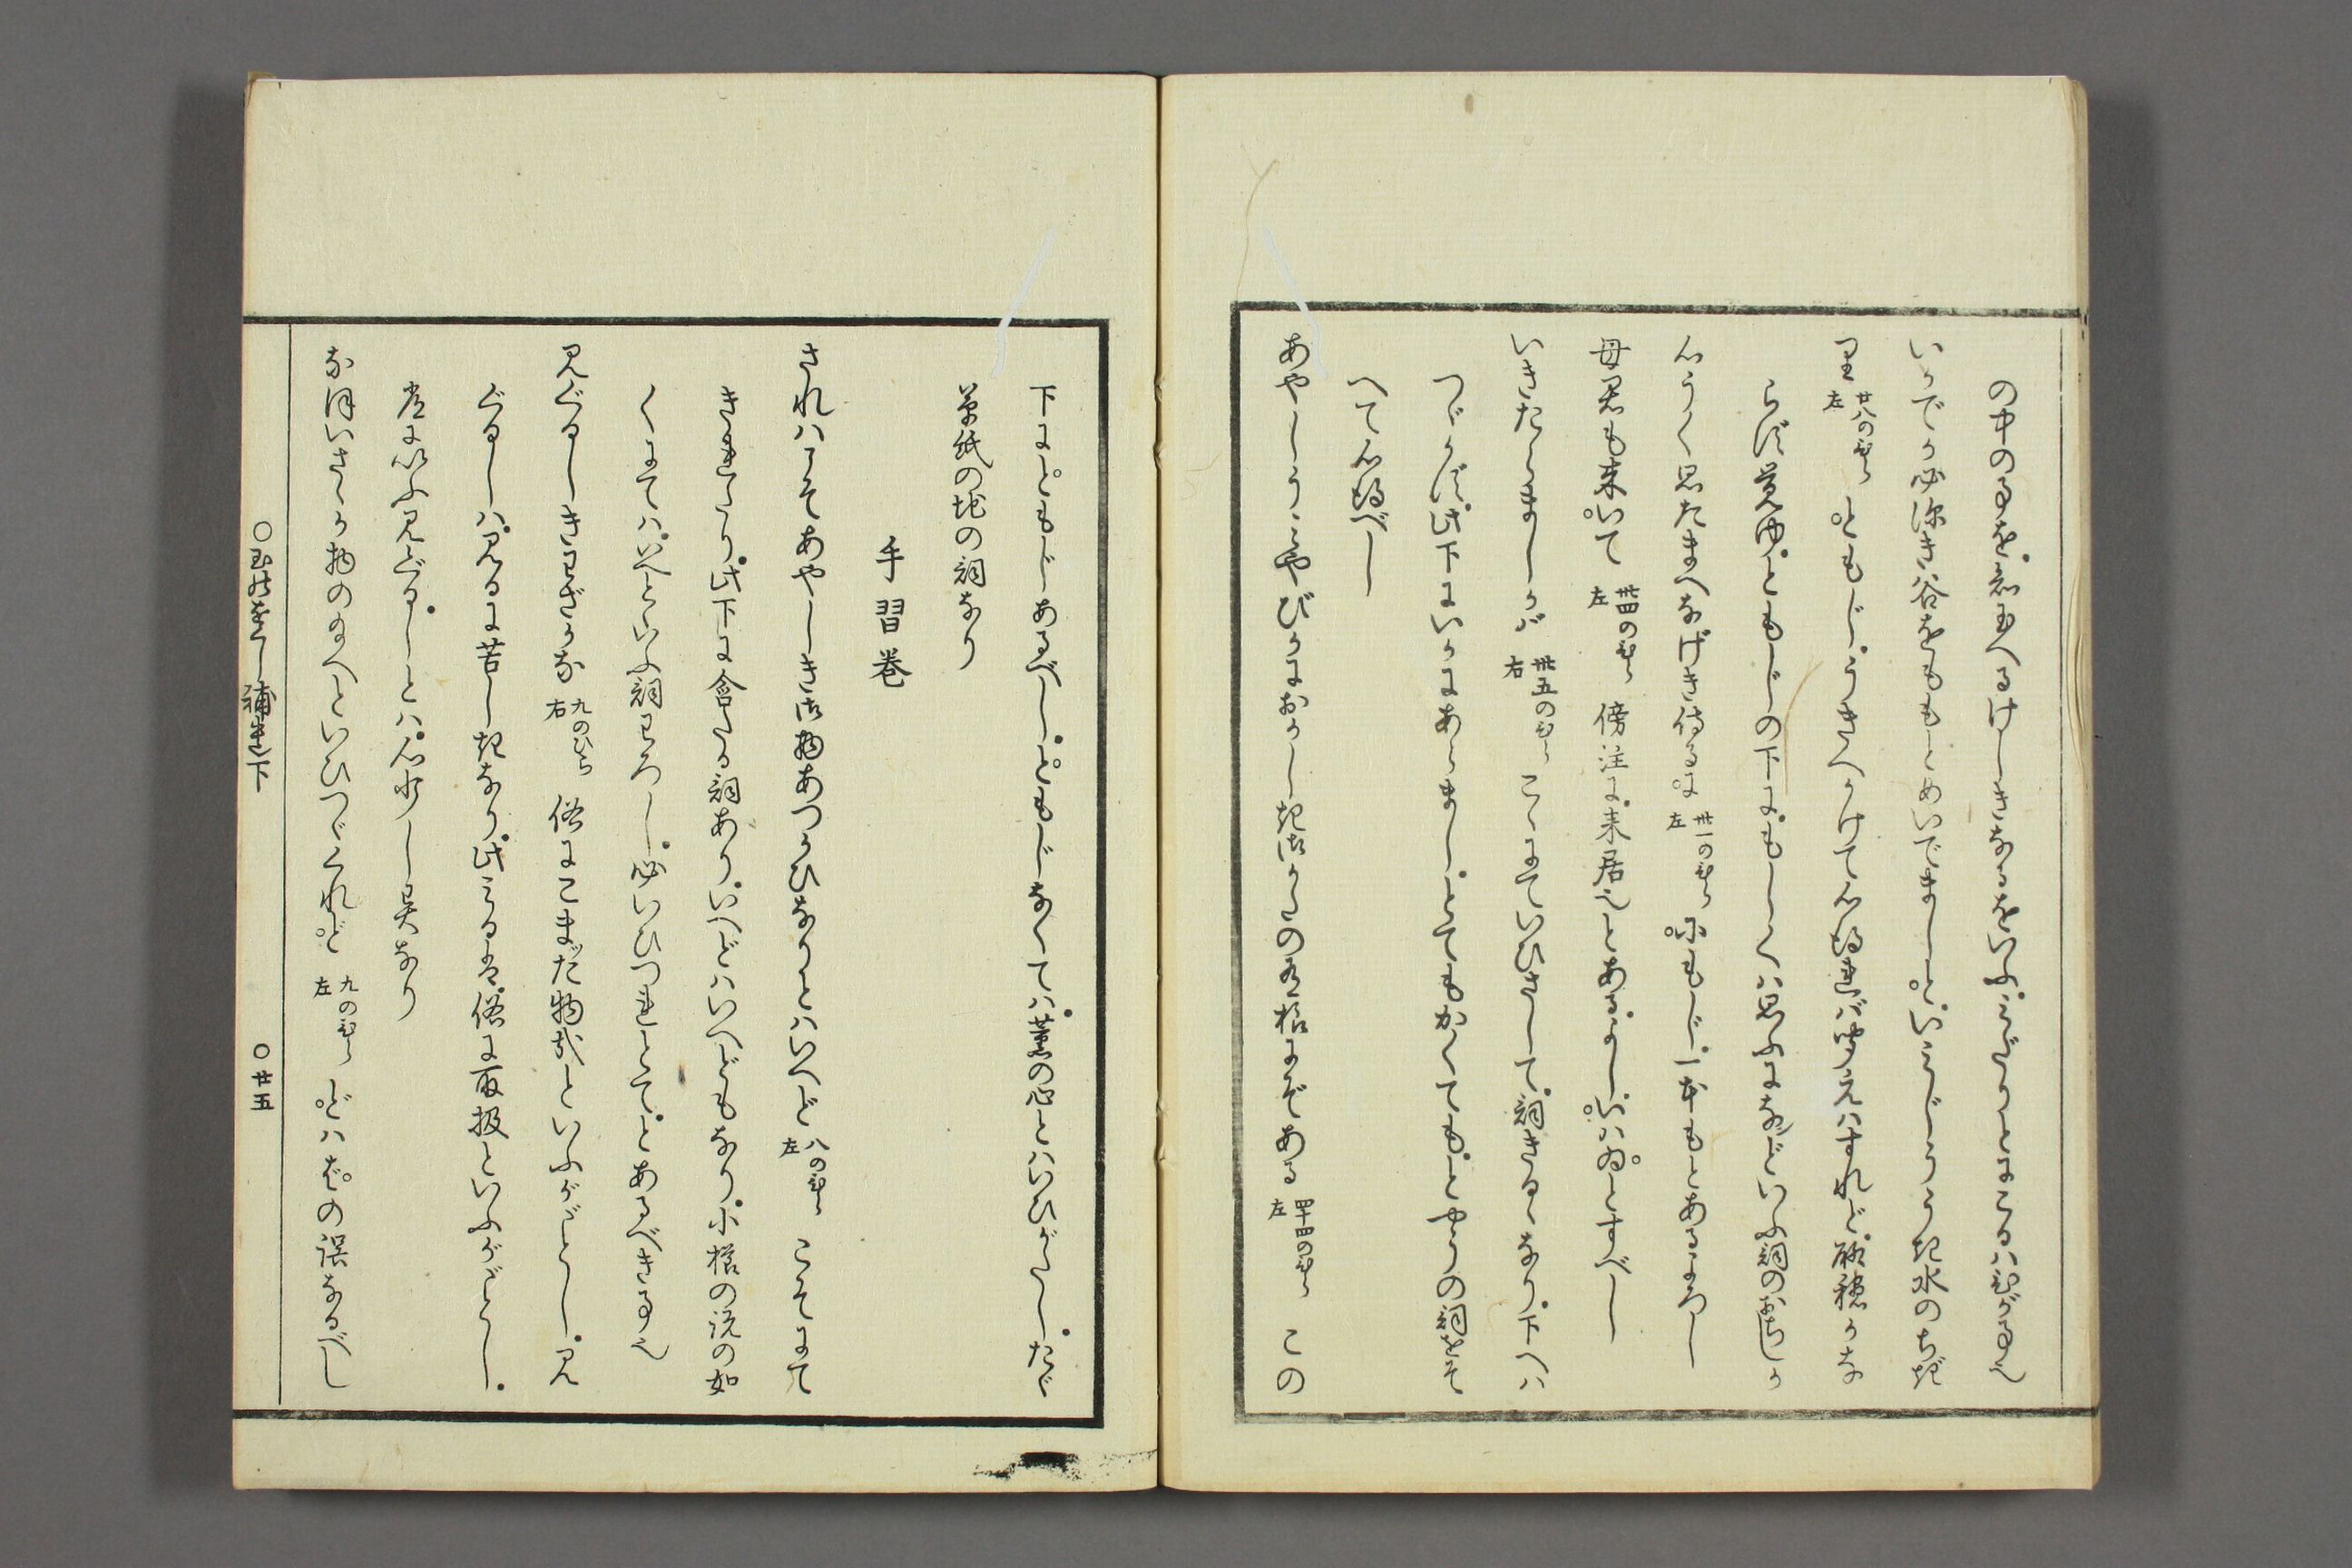 の中の事を思へるけしきなるをいふ
いかでか必深き谷をももとめいでましと いみじううき水のちぎ
里 廿八のひら 左 ともじうきへかけて心得れば聞えはすれど願穏かな
らず覚ゆともじの下にもしくは思ふになどいふ詞のおちしか
心うく思たまへなげき侍るに 卅一のひら 左 にもじ一本もとあるよろし
母君も来いて 卅四のひら 左 傍注に来居也とあるよしいはゐとすべし
いきたらましかば 卅五のひら 右 こゝにていひさして詞きるゝなり下へは
つゞかず此下にいかにあらましとてもかくてもとやうの詞をそ
へて心得べし
あやしうみやびかにおかしき御かたの有様にぞある 四十四のひら 左 この
下にともじあるべしともじなくては薫の心とはいひがたしたゞ
草紙の地の詞なり
手習巻
されはこそあやしき御物あつかひなりとはいへど 八のひら 左 こそにて
きれたり此下に含たる詞ありいへどはいへどもなり小櫛の説の如
くにてはいへといふ詞わろし必いひつれとてとあるべき事也
見ぐるしきわざかな 九のひら 右 俗にこまだ物哉といふがごとし見
ぐるしは見るに苦しきなり此みるは俗に取扱といふがごとし
常にいふ見ぐるしとは心少し異なり
なほいさゝか物のたまへといひつゞくれど 九のひら 左 どはばの誤なるべし
○玉のをぐし補遺下 ○廿五